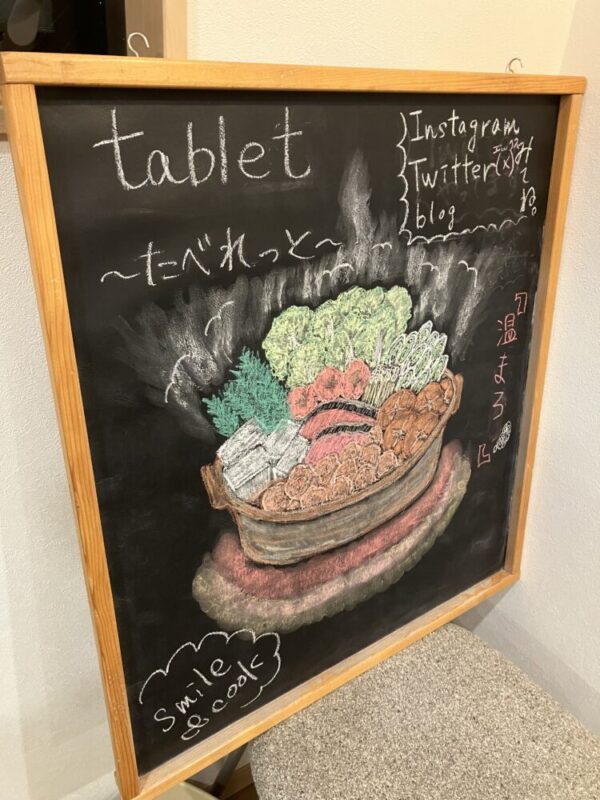 tablet
～たべれっと～
Instagram
Twitter(X)
blog
みてね。
『温まろ』
smile
& cook